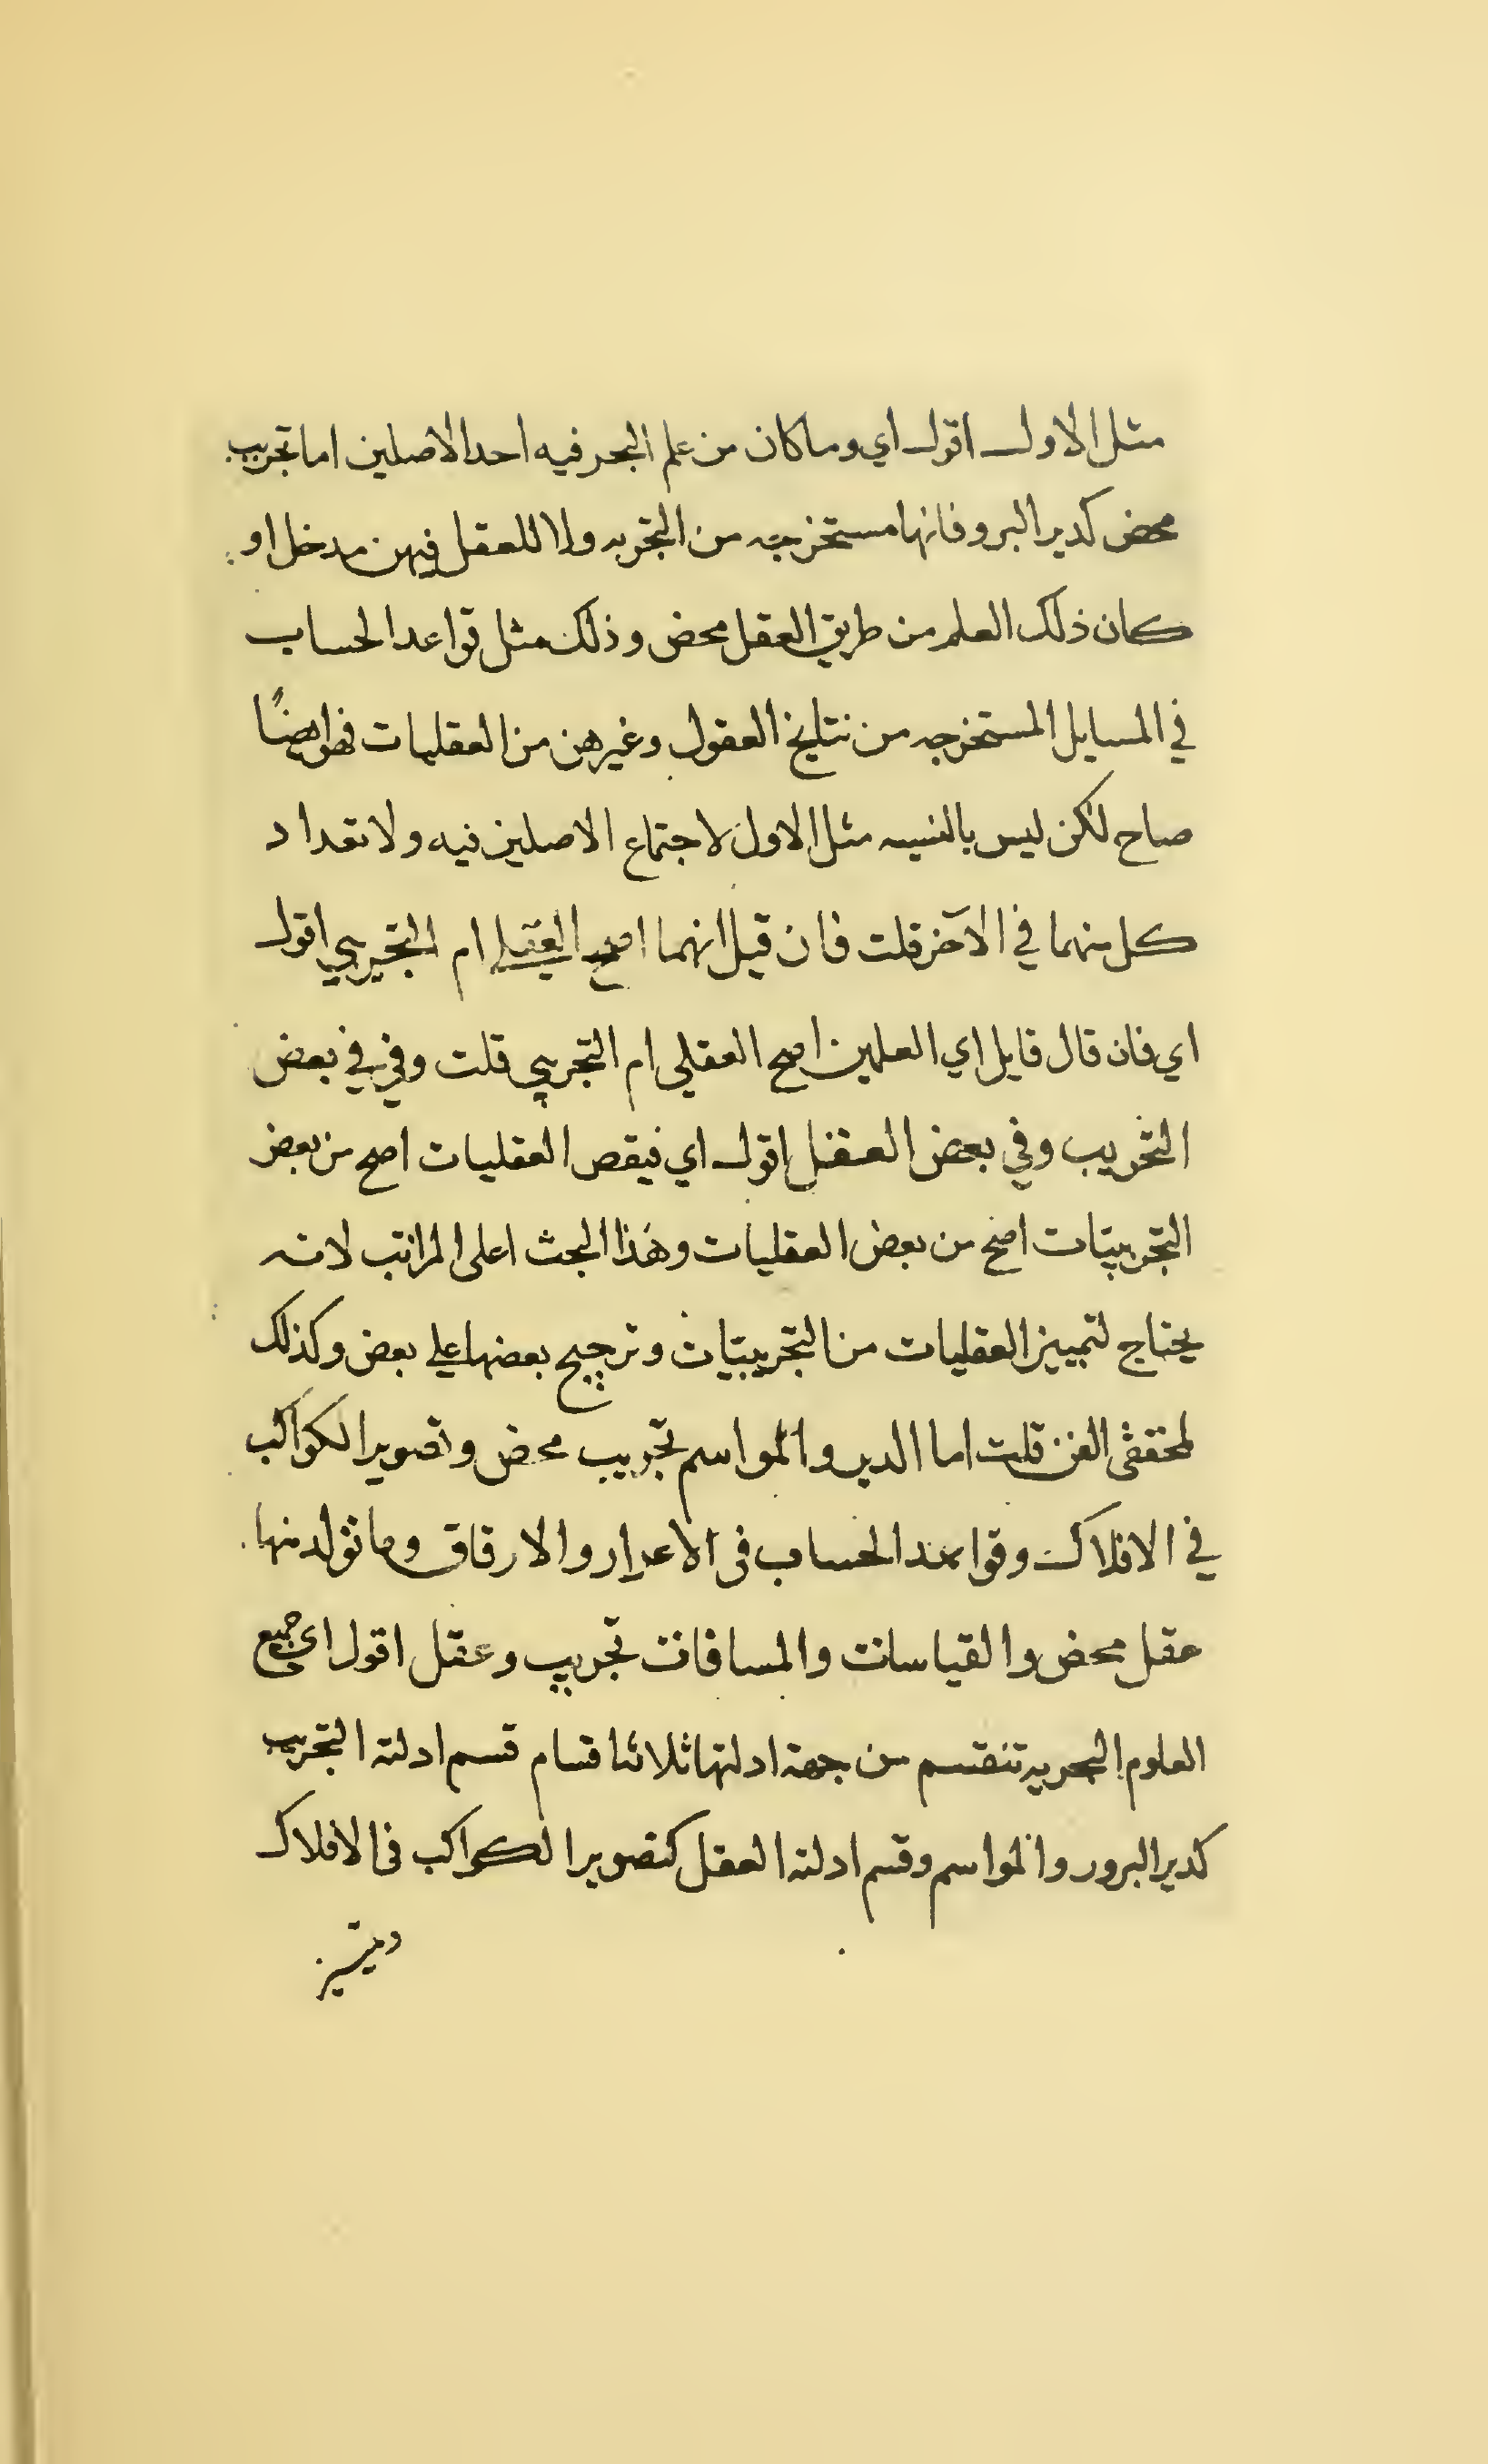 مثل الاول اقول اي وما كان من علم البحر فيه احد الاصلين اما تجريب
محض كدير البر وفانها مستخرجه من التجربه ولا للعقل فيهن مدخل او
كان ذلك العلم من طريق العقل محض وذلك مثل قواعد الحساب
في المسايل المستخرجه من نتايج العقول وغيرهن من العقليات فهو ايضًا
صاح لكن ليس بالنسبه مثل الاول لاجتماع الاصلين فيه ولانقداد
كل منهما في الآخر قلت فان قيل انهما اصح العقلي ام التجريبي اقول
اي فان قال قايل اي العلمين اصح العقلي ام التجريبي قلت وفي في بعض
التجريب وفي بعض العقل اقول اي فبعض العقليات اصح من بعض
التجريبيّات اصح من بعض العقليات وهذا البحث اعلى المراتب لانه
يحتاج لتمييز العقليات من التجريبيّات وترجيح بعضها علي بعض وكذلك
لمحققى الفن قلت اما الدير والمواسم تجريب محض وتصوير الكواكب
في الافلاك وقواعد الحساب فى الاعدار والارقاق وما تولد منها
عقل محض والقياسات والمسافات تجريب وعقل اقول اى جميع
العلوم البحريه تنقسم من جهة ادلتها ثلاثة اقسام قسم ادلته التجريب
كدير البرور والمواسم وقسم ادلته العقل كتصوير الكواكب فى الافلاك